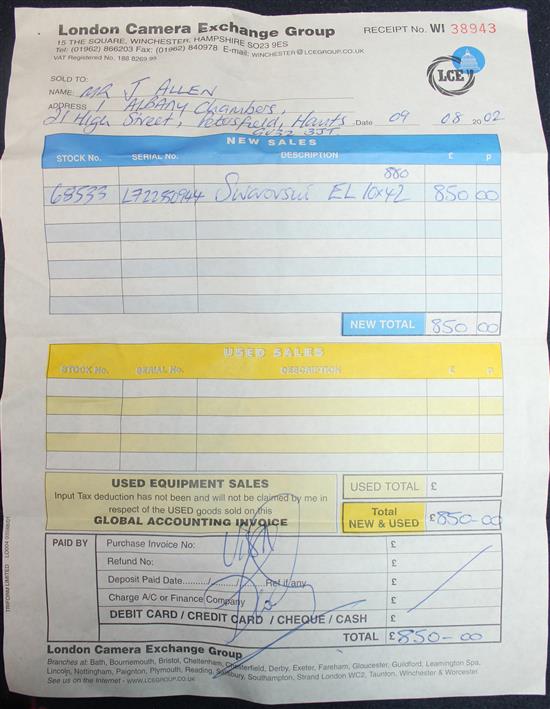 London Camera Exchange Group RECEIPT No. WI 38943
15 THE SQUARE, WINCHESTER, HAMPSHIRE SO23 9ES
Tel: (01962) 866203 Fax: (01962) 840978 E-mail: WINCHESTER@LCEGROUP.CO.UK
VAT Registered No. 188 8269 99
LCE
SOLD TO:
NAME: MR J ALLEN
ADDRESS 1 Albany Chambers,
21 High Street, Petersfield, Hants Date 09 08 2002
GU32 3JT
NEW SALES
STOCK No. SERIAL No. DESCRIPTION £ p
880
68533 L72280944 Swarovski EL 10x42 850 00
NEW TOTAL 850 00
USED SALES
STOCK No. SERIAL No. DESCRIPTION £ p
USED EQUIPMENT SALES USED TOTAL £
Input Tax deduction has not been and will not be claimed by me in
respect of the USED goods sold on this
GLOBAL ACCOUNTING INVOICE
Total
NEW & USED £850-00
PAID BY Purchase Invoice No: £
VISA
Refund No: £
Deposit Paid Date........./........./......... Ref if any £
Charge A/C or Finance Company £
DEBIT CARD / CREDIT CARD / CHEQUE / CASH
TOTAL £850-00
London Camera Exchange Group
Branches at: Bath, Bournemouth, Bristol, Cheltenham, Chesterfield, Derby, Exeter, Fareham, Gloucester, Guildford, Leamington Spa,
Lincoln, Nottingham, Paignton, Plymouth, Reading, Salisbury, Southampton, Strand London WC2, Taunton, Winchester & Worcester.
See us on the Internet - WWW.LCEGROUP.CO.UK
TRIFORM LIMITED